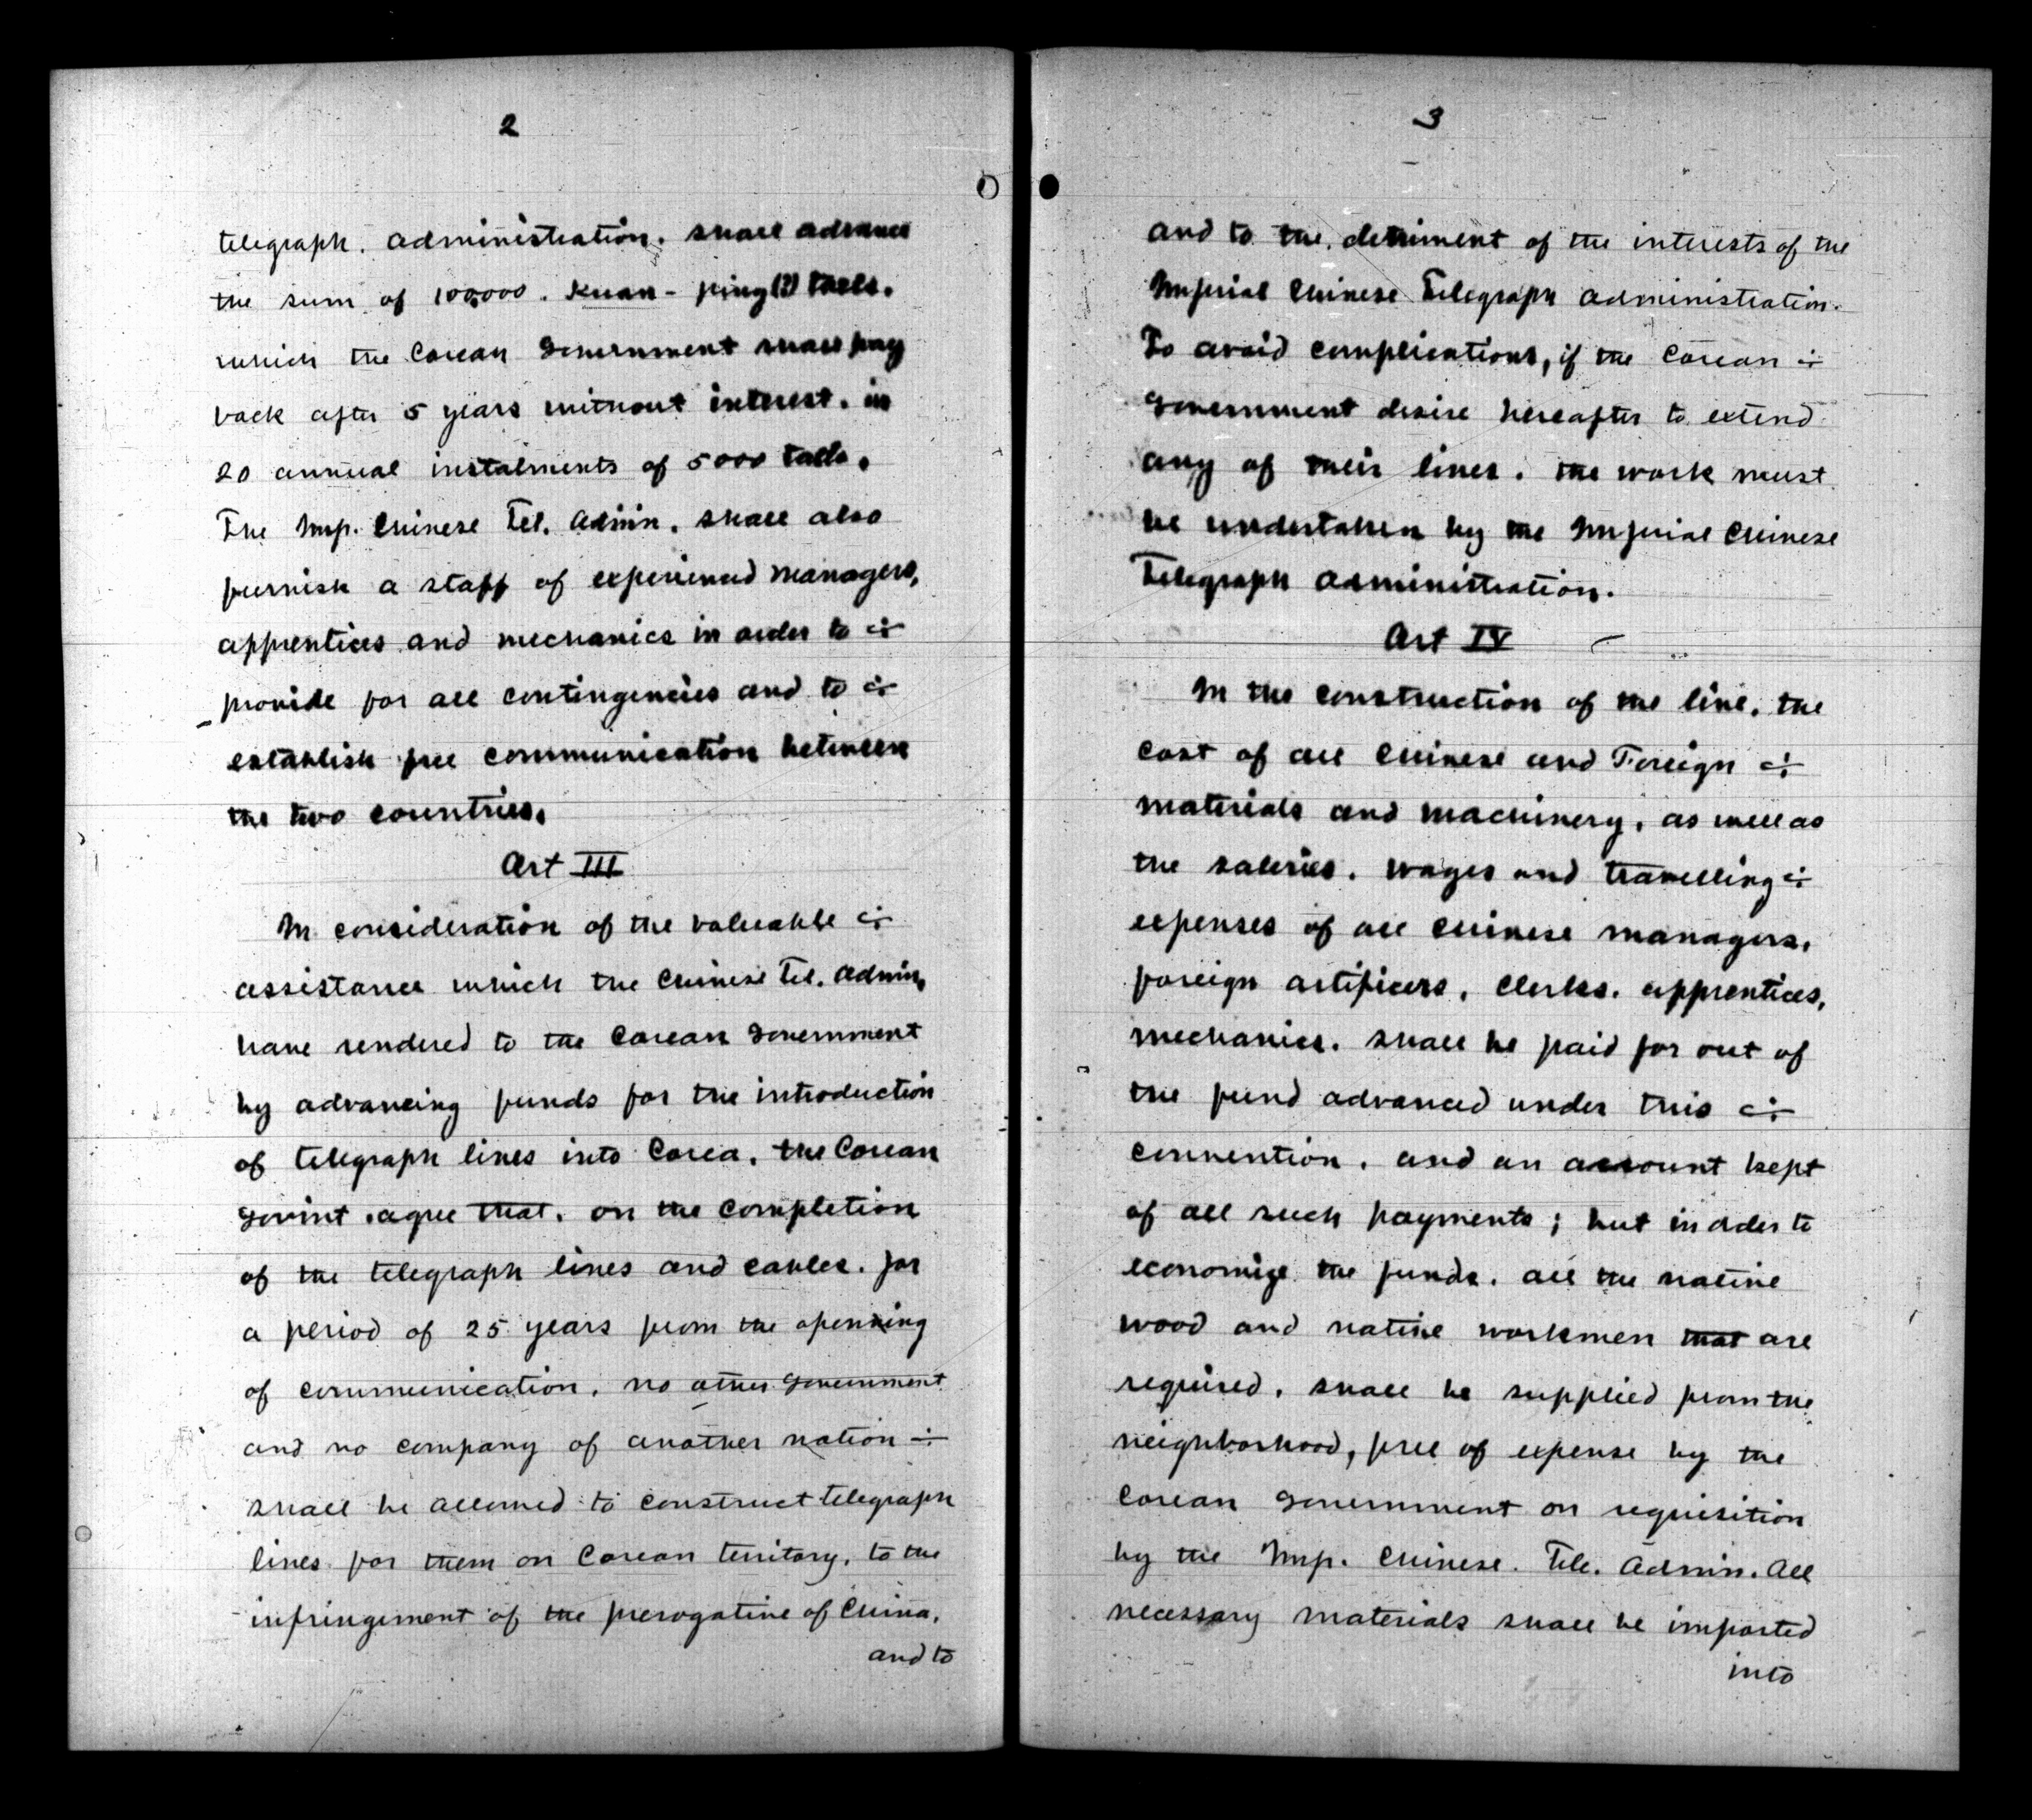 2
telegraph. administration. shall advance
the sum of 100,000. Kuan-ping (?) taels.
which the Corean Government shall pay
back after 5 years without interest. in
20 annual instalments of 5000 taels.
The Imp. Chinese Tel. Admin. shall also
furnish a staff of experienced managers,
apprentices and mechanics in order to
provide for all contingencies and to
establish free communication between
the two countries.
Art III
In consideration of the valuable
assistance which the Chinese Tel. Admin.
have rendered to the Corean Government
by advancing funds for the introduction
of telegraph lines into Corea, the Corean
Govmt. agree that, on the completion
of the telegraph lines and cables. for
a period of 25 years from the openning
of communication, no other Government
and no company of another nation
shall be allowed to construct telegraph
lines for them on Corean territory, to the
infringement of the prerogative of China,
and to
3
and to the detriment of the interests of the
Imperial Chinese Telegraph Administration.
To avoid complications, if the Corean
Government desire hereafter to extend
any of their lines. the work must
be undertaken by the Imperial Chinese
Telegraph Administration.
Art IV
In the construction of the line, the
cost of all Chinese and Foreign
materials and machinery, as well as
the saleries. wages and travelling
expenses of all Chinese managers,
foreign artificers, clerks. apprentices,
mechanics. shall be paid for out of
the fund advanced under this
convention, and an account kept
of all such payments; but in order to
economize the funds. all the native
wood and native workmen that are
required, shall be supplied from the
neighborhood, free of expense by the
Corean Government on requisition
by the Imp. Chinese. Tele. Admin. All
necessary materials shall be imported
into